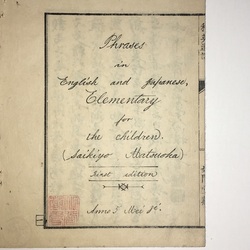 Phrases
in
English and Japanese,
Elementary
for
the children.
(Saikiyo Matsuoka)
First edition
Anno 5 Mei 8e.